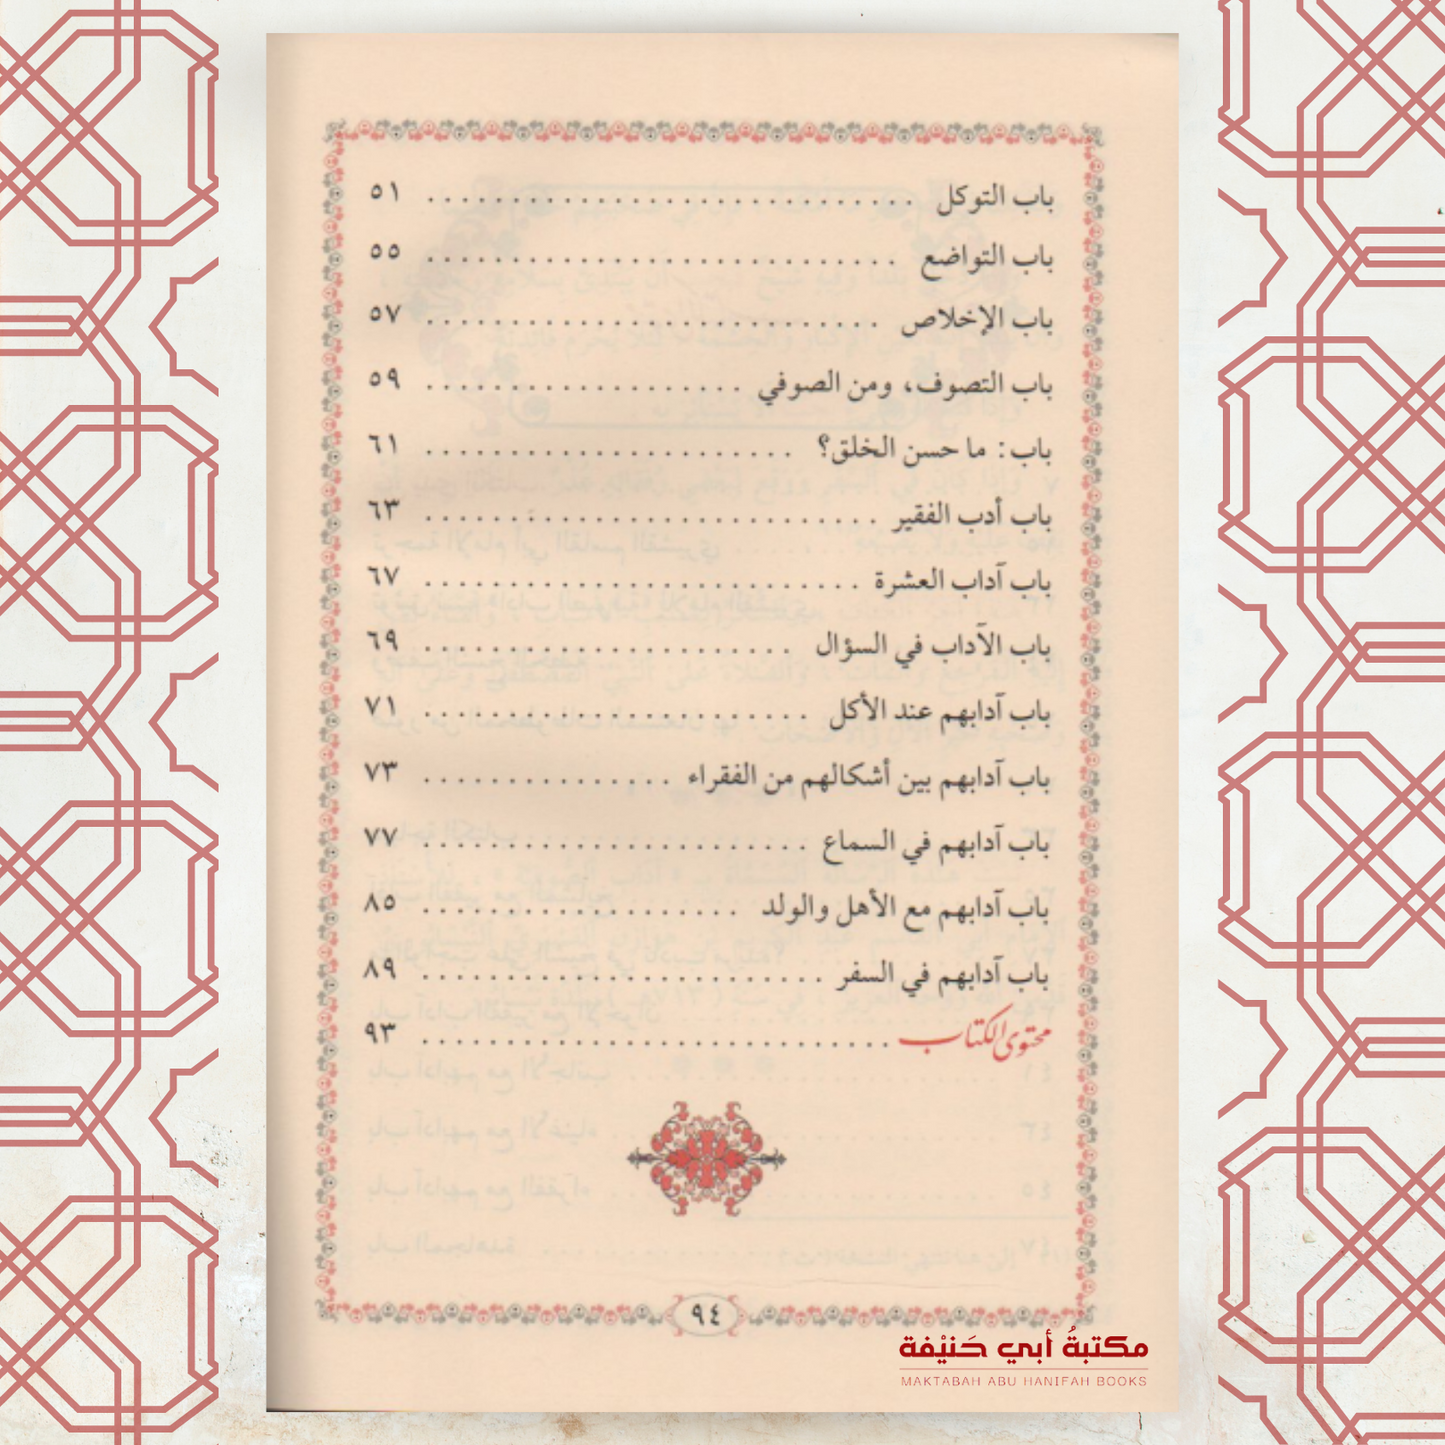 باب التوكل .............................. ٥١
باب التواضع ............................ ٥٥
باب الإخلاص ........................... ٥٧
باب التصوف، ومن الصوفي ................... ٥٩
باب: ما حسن الخلق؟ ...................... ٦١
باب أدب الفقير ........................... ٦٣
باب آداب العشرة .......................... ٦٧
باب الآداب في السؤال ...................... ٦٩
باب آدابهم عند الأكل ....................... ٧١
باب آدابهم بين أشكالهم من الفقراء ............... ٧٣
باب آدابهم في السماع ....................... ٧٧
باب آدابهم مع الأهل والولد ................... ٨٥
باب آدابهم في السفر ........................ ٨٩
محتوى الكتاب ............................ ٩٣
٩٤
مكتبةُ أبي حَنيْفة
MAKTABAH ABU HANIFAH BOOKS